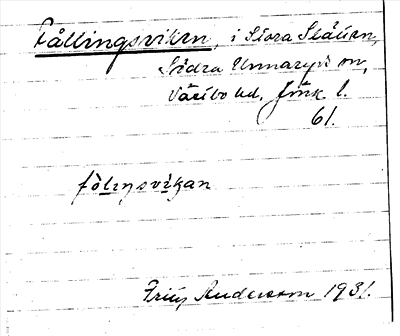 Fållingsviken, i Stora Slätten,
Södra Unnaryds sn,
Västbo hd. Jönk. l.
61.
fölıŋsvikan
Andersson 1931.